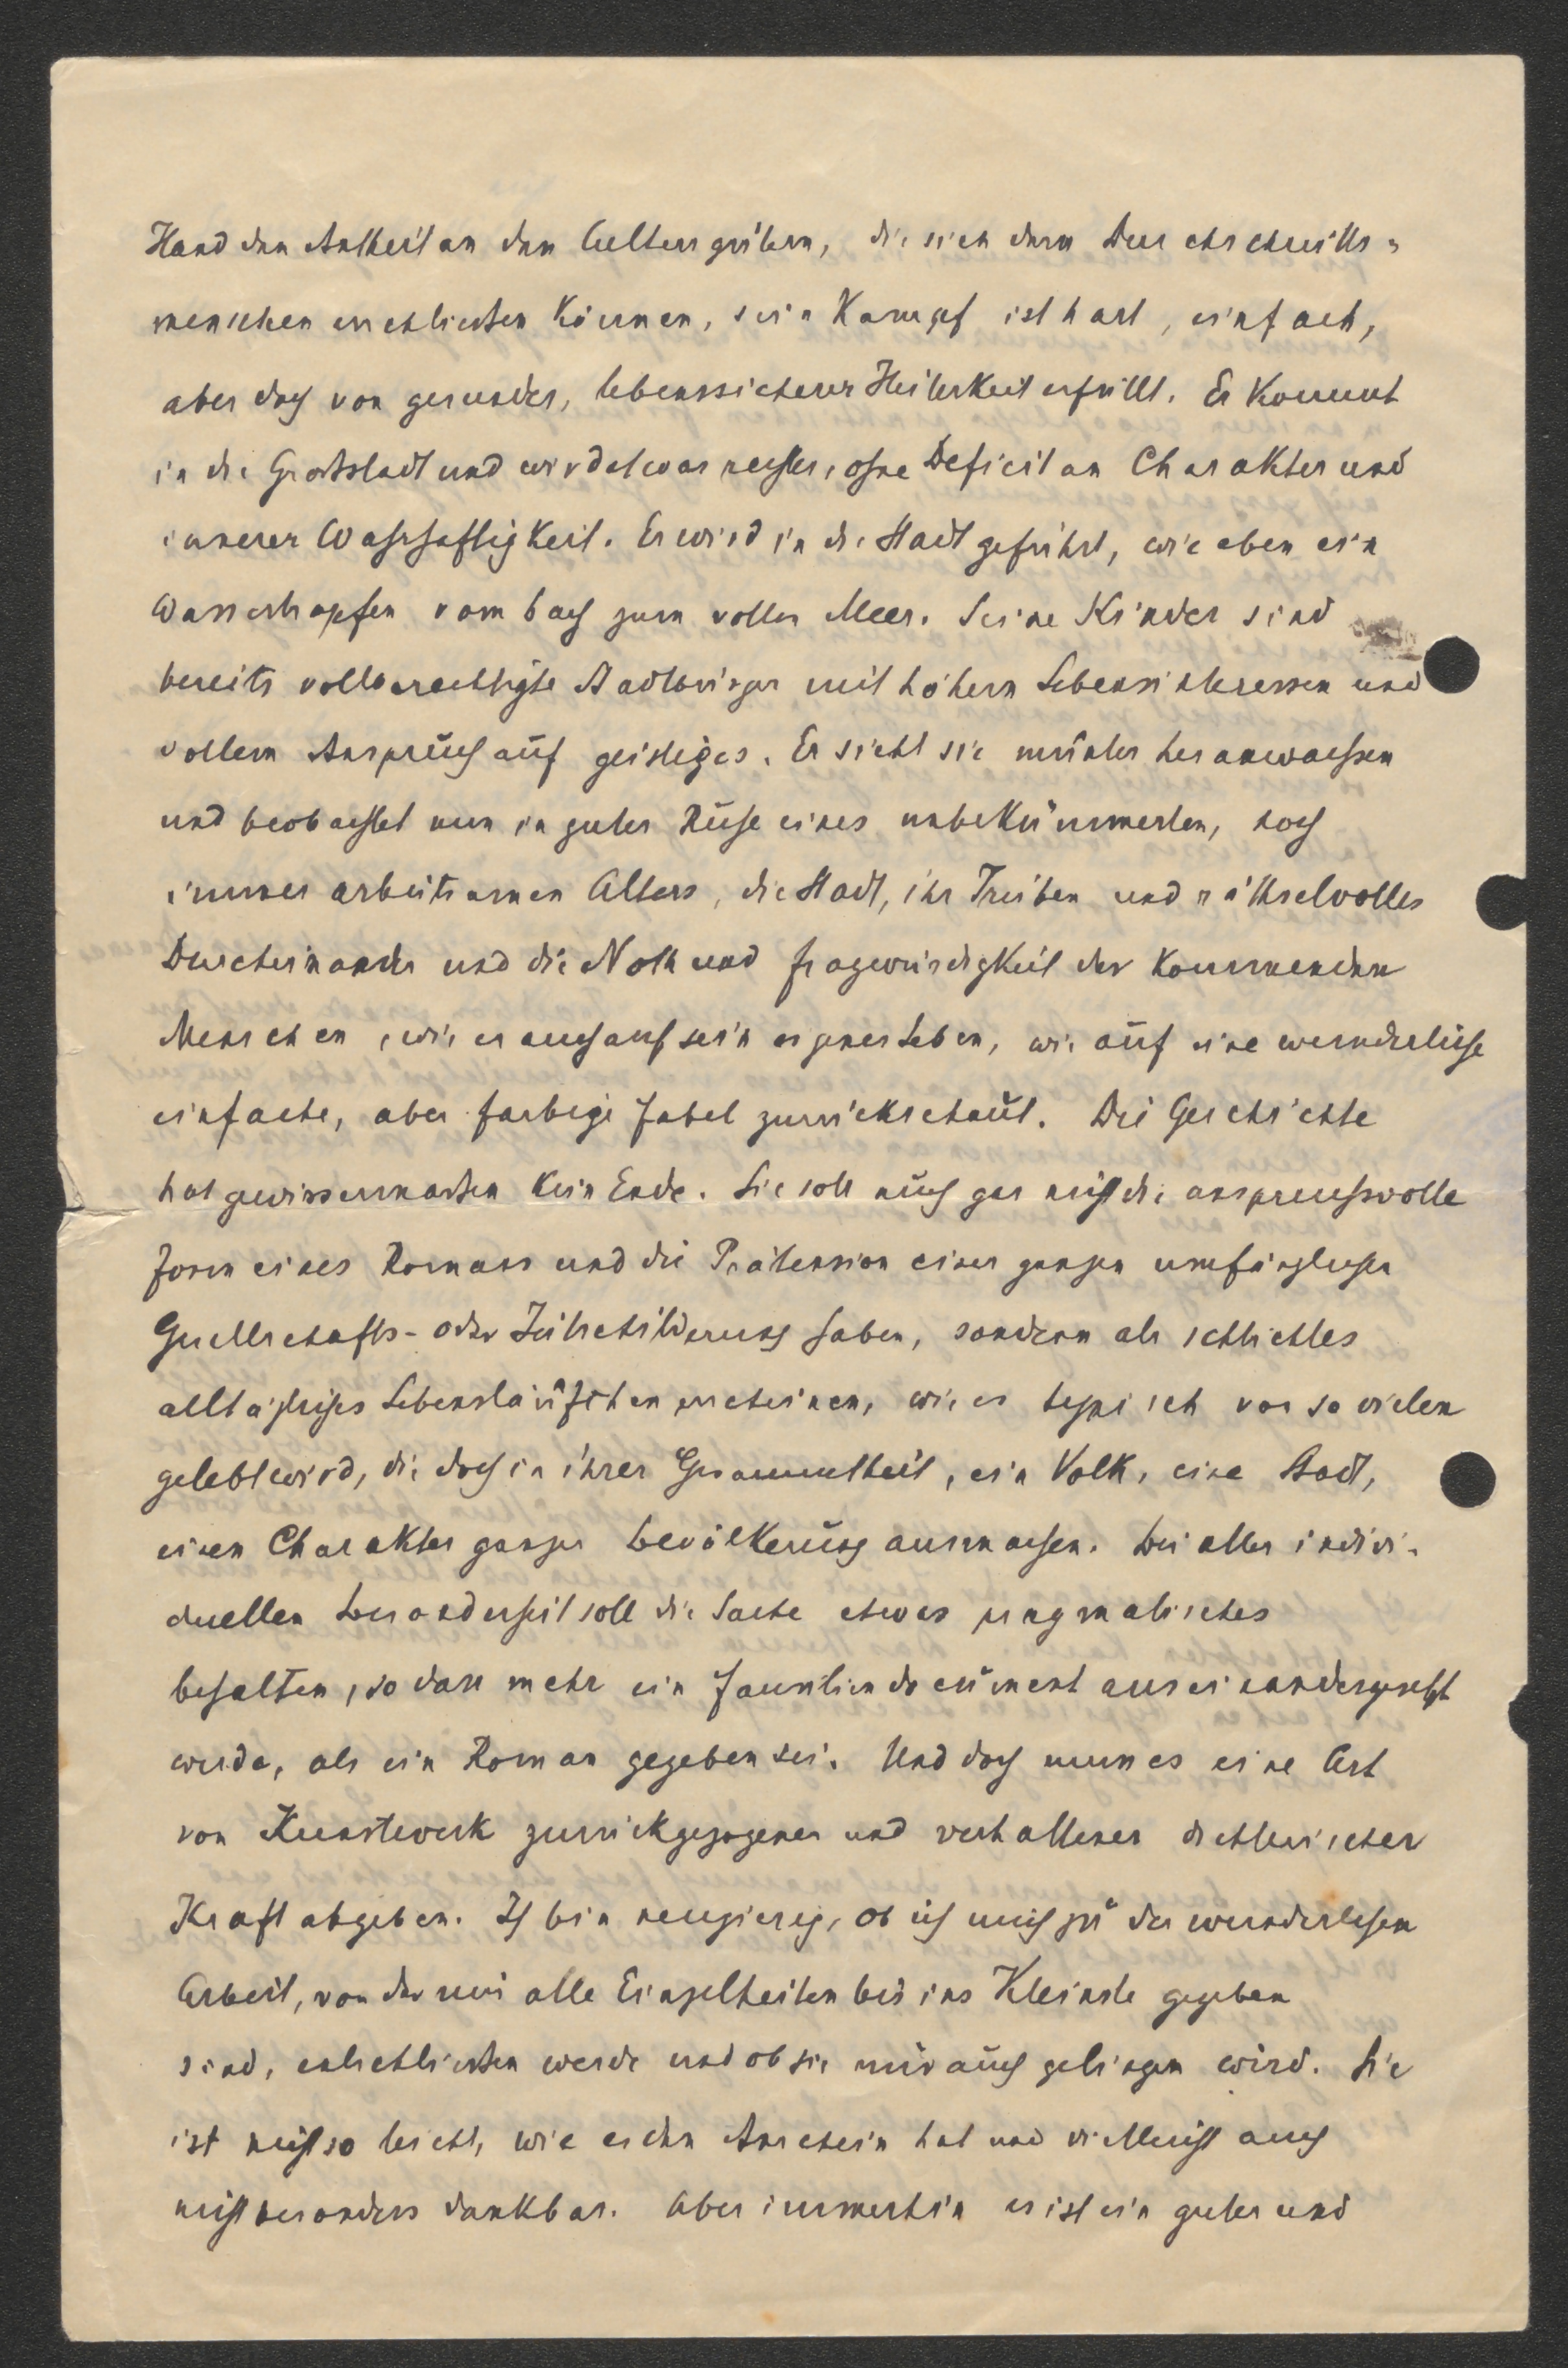 Hand den Antheil an den Culturgütern, die sich dem Durchschnitts-
menschen erschliessen können, sein Kampf ist hart, einfach,
aber doch von gesunder, lebenssicherer Heiterkeit erfüllt. Er kommt
in die Grossstadt und wird etwas rechtes, ohne Deficit an Charakter und
innerer Wahrhaftigkeit. Er wird in die Stadt geführt, wie eben ein
Wassertropfen vom bach zum vollen Meer. Seine Kinder sind
bereits vollberechtigte Stadtbürger mit höhern Lebensinteressen und
vollem Anspruch auf geistiges. Er sieht sie munter heranwachsen
und beobachtet nun in guter Ruhe eines unbekümmerten, noch
immer arbeitsamen Alters, die Stadt, ihr Treiben und räthselvolles
Durcheinander und die Noth und fragwürdigkeit der kommenden
Menschen, wie er auch auf sein eigenes Leben, wie auf eine wunderliche
einfache, aber farbige fabel zurückschaut. Die Geschichte
hat gewissermassen kein Ende. Sie soll auch gar nicht die anspruchsvolle
form eines Romans und die Prätension einer ganzen umfänglichen
Gesellschafts- oder Zeitschilderung haben, sondern als schlichtes
alltägliches Lebensläufchen erscheinen, wie es typisch von so vielen
gelebt wird, die doch in ihrer Gesammtheit, ein Volk, eine Stadt,
einen Charakter ganzer bevölkerung ausmachen. bei aller indivi-
duellen besonderheit soll die Sache etwas pragmatisches
behalten, so dass mehr ein familiendocument auseinandergesetzt
werde, als ein Roman gegeben sei. Und doch muss es eine Art
von Kunstwerk zurückgezogener und verhaltener dichterischer
Kraft abgeben. Ich bin neugierig, ob ich mich zu der wunderlichen
Arbeit, von der mir alle Einzelheiten bis ins Kleinste gegeben
sind, entschliessen werde und ob sie mir auch gelingen wird. Sie
ist nicht so leicht, wie es den Anschein hat und vielleicht auch
nicht besonders dankbar. Aber immerhin es ist ein guter und